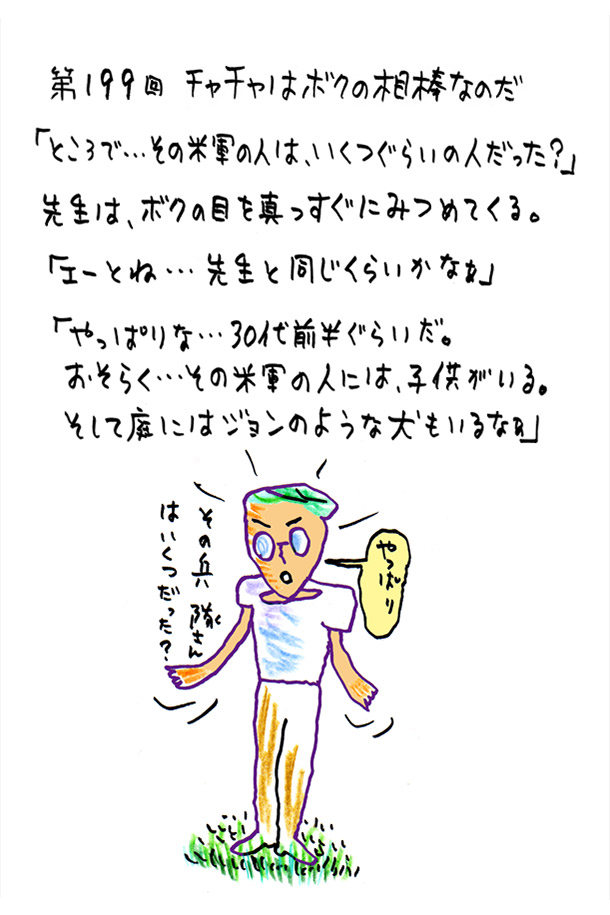 第199回 チャチャはボクの相棒なのだ
「ところで…その米軍の人は、いくつぐらいの人だった?」
先生は、ボクの目を真っすぐにみつめてくる。
「エーとね…先生と同じくらいかなぁ」
「やっぱりな…30代前半ぐらいだ。
おそらく…その米軍の人には、子供がいる。
そして庭にはジョンのような犬もいるなぁ」
その兵隊さん
はいくつだった?
やっぱり